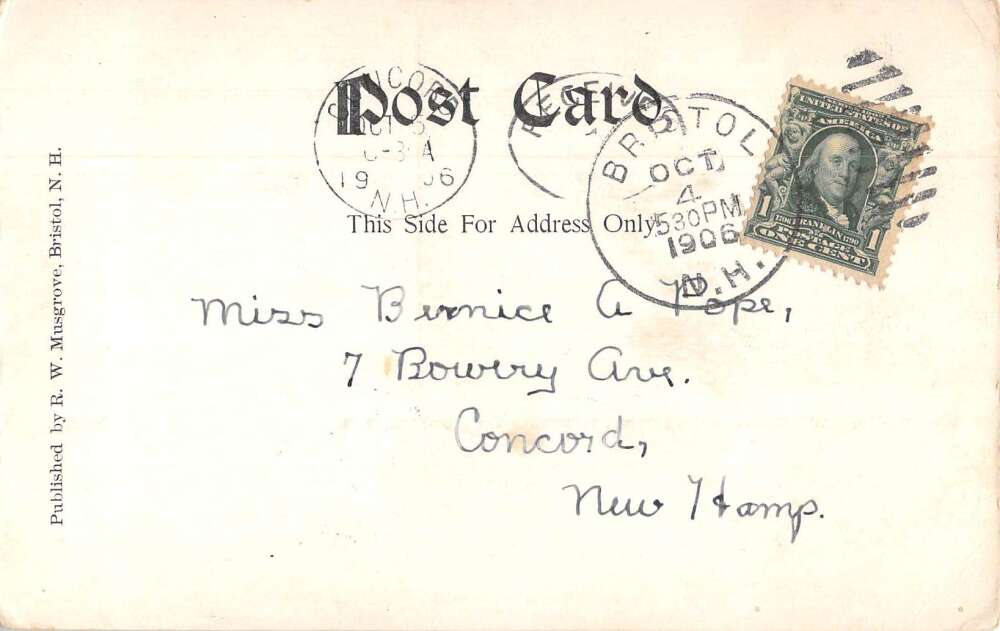 Post Card
CONCORD
OCT 5
A
1906
N.H.
RECEIVED
BRISTOL
OCT
4
530PM
1906
N.H.
UNITED STATES OF
AMERICA
1 1706 FRANKLIN 1790 1
POSTAGE
ONE CENT
This Side For Address Only.
Miss Bernice A Pope,
7 Bowery Ave.
Concord,
New Hamp.
Published by R. W. Musgrove, Bristol, N. H.